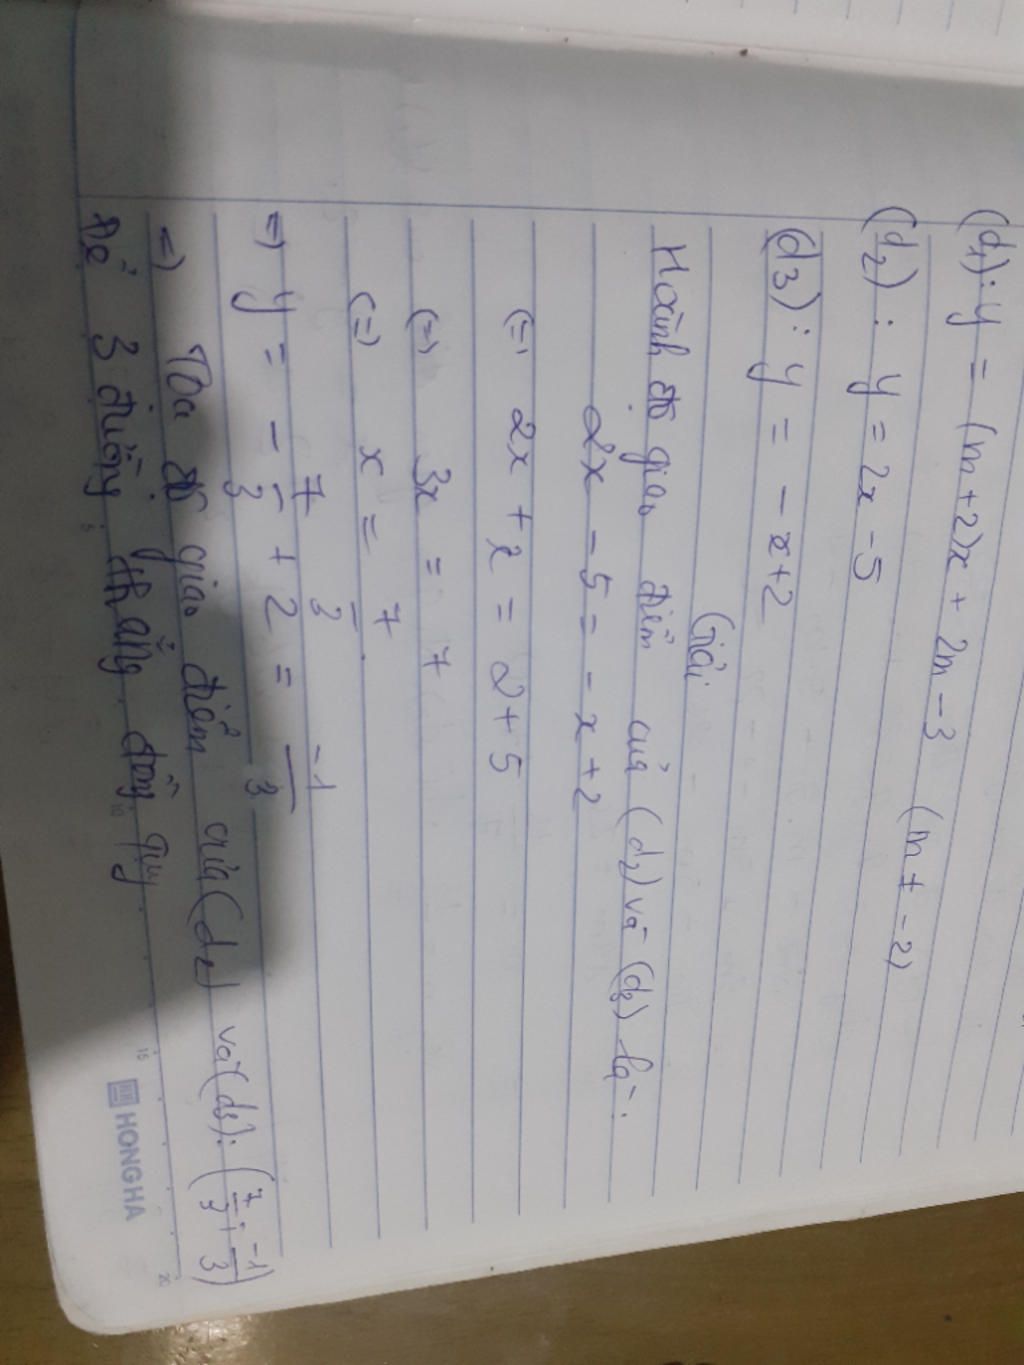 (d1): y = (m+2)x + 2m - 3 (m ≠ -2)
(d2): y = 2x - 5
(d3): y = - x+2
Giải
Hoành độ giao điểm của (d2) và (d3) là:
2x - 5 = - x + 2
(=) 2x + x = 2 + 5
(=) 3x = 7
(=) x = 7/3
=) y = - 7/3 + 2 = -1/3
=) Tọa độ giao điểm của (d2) và (d3): (7/3; -1/3)
Để 3 đường thẳng đồng quy
5 10 15 20
HONG HA